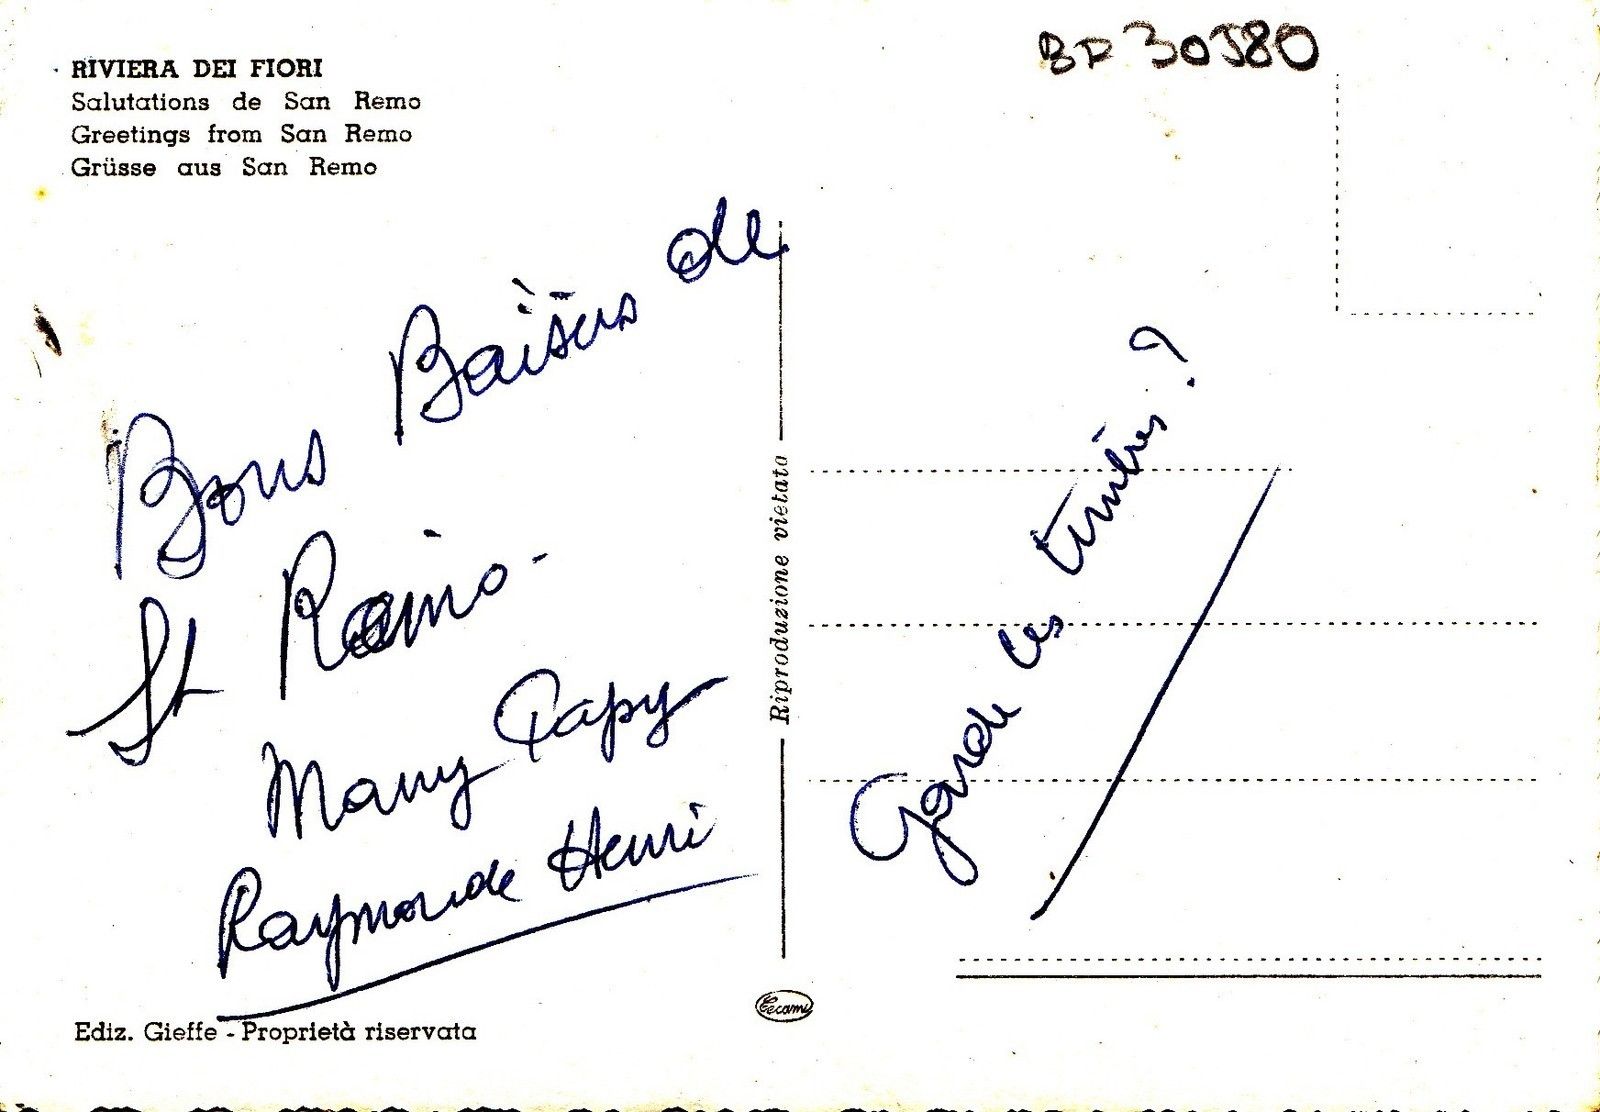 RIVIERA DEI FIORI
Salutations de San Remo
Greetings from San Remo
Grüsse aus San Remo
Bons Baisers de
St Remo -
Mamy Papy
Raymonde Henri
Ediz. Gieffe - Proprietà riservata
Riproduzione vietata
Tecami
Garde les timbres ?